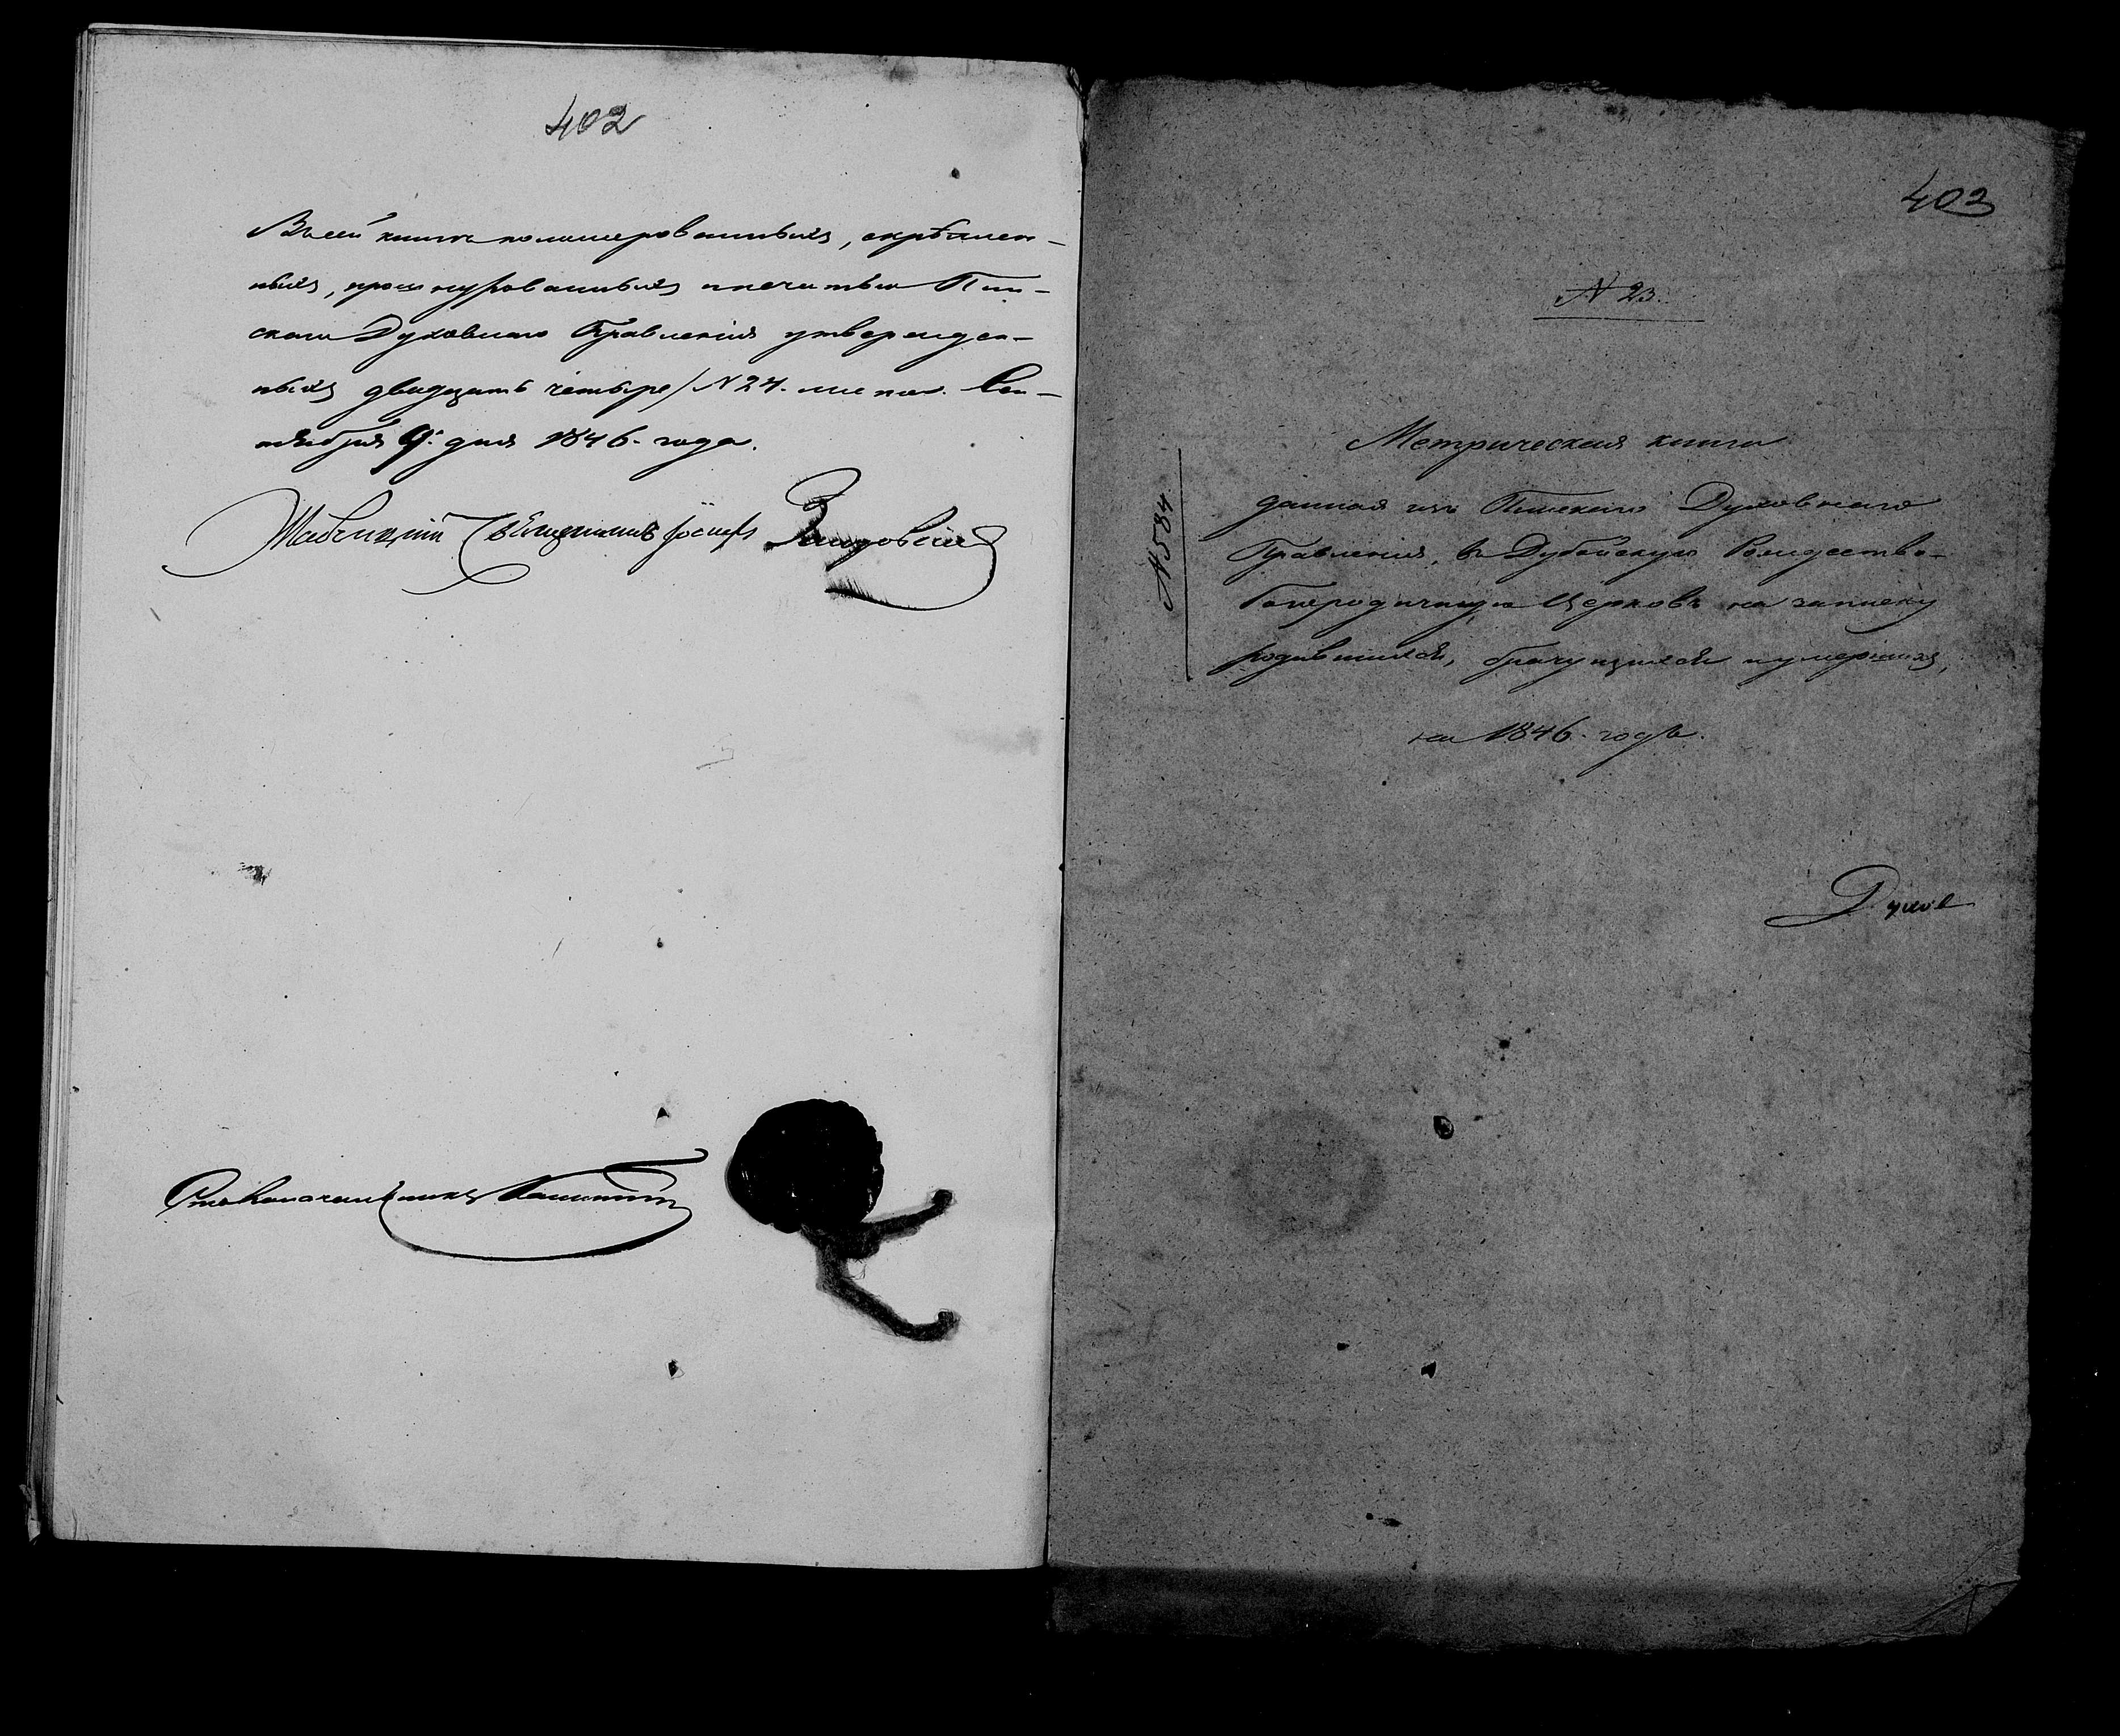 402
Въ сей книге нономерованныхъ, скрѣплен-
ныхъ, прошнурованныхъ и печатью Пин-
скаго Духовнаго Правленія утвержден-
ныхъ двадцать четыре / N 24. листов. Сен-
тября 9. дня 1846. года.
Священникъ Іосифъ
Столоначальникъ
403
N 23.
Метрическая книга
N 584
данная изъ Пинскаго Духовнаго
Правленія, въ Дубойскую Рождество-
Богородичную Церковь на записку
родившихся, бракущихся и умершихъ,
на 1846. годъ.
Духов